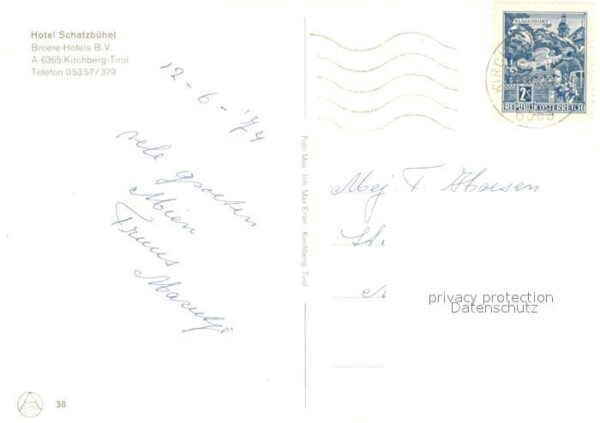 Hotel Schatzbühel
Broere-Hotels B.V.
A-6365 Kirchberg-Tirol
Telefon 05357/379
12-6-'74
vele groeten
Mien
Truus
Foto Max · Inh. Max Erler · Kirchberg, Tirol
KLAGENFURT
2S
REPUBLIK ÖSTERREICH
KIRCH
6365
Mej. T.
St.
privacy protection
Datenschutz
38